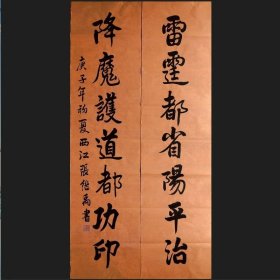 雷霆都省陽平治
降魔護道都功印
庚子年初夏西江張繼禹書